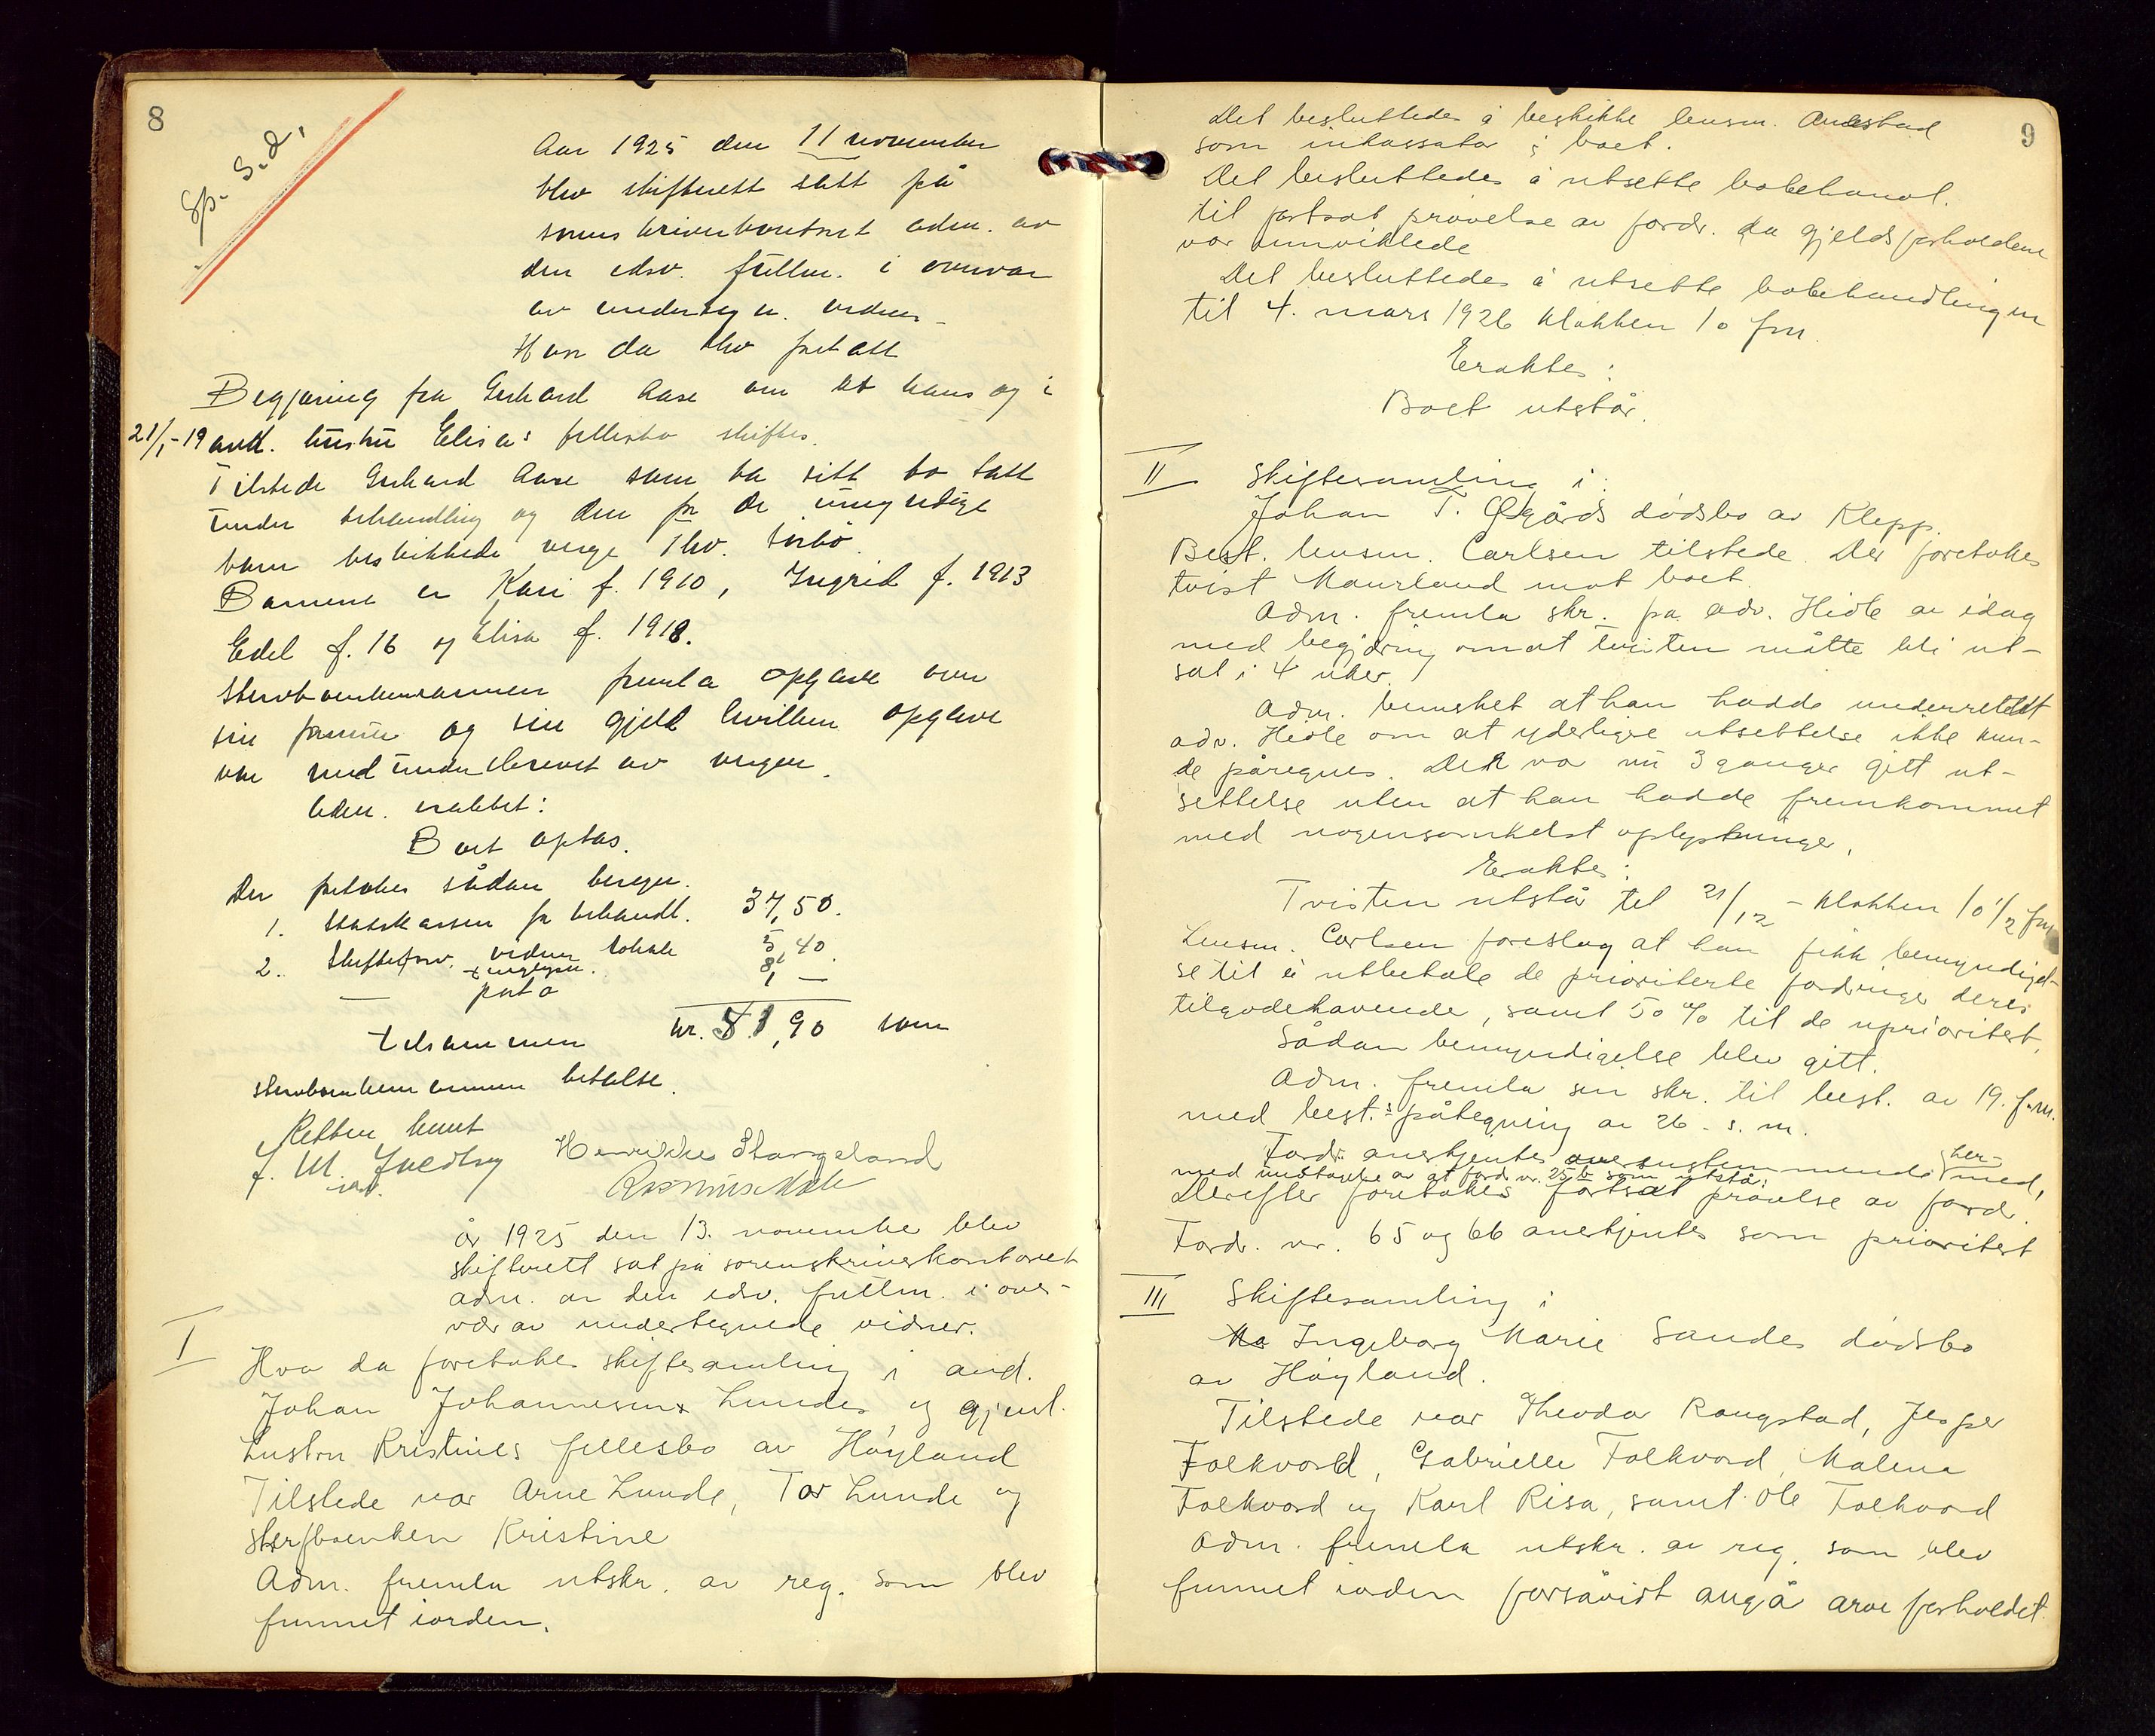 8
Sp. S. d.,
Aar 1925 den 11 november
blev skifterett satt på
sorenskriverkontoret adm. av
den edsv. fullm. i overvær
av undertegn. vidner.
Hvor da blev foretatt
Begjæring fra Gerhard Aase om at hans og i
21/1-19 avd. hustru Elisas fellesbo skiftes.
Tilstede Gerhard Aase som ba sitt bo tatt
under behandling og den for de umyndige
barn beskikkede verge Thv.
Barnene er Kari f. 1910, Ingrid f. 1913
Edel f. 16 og Elisa f. 1918.
Sterboenkemannen fremla opgave over
sin formue og sin gjeld hvilken opgave
var medunderskrevet av vergen.
Adm. erakted:
Boet optas.
Der foretokes sådan beregn.
1. Statskassen for behandl. 37,50.
2. Skifteforv. vidner lokale 5,40
+ tinglysn.
— porto 8, —
tilsammen kr. 51,90 som
sterboenkemannen betalte.
Retten hevet
Henrikke Stangeland
Rasmus
år 1925 den 13. november blev
skifterett sat på sorenskriverkontoret
adm. av den edsv. fullm. i over-
vær av undertegnede vidner.
I
Hvor da foretokes skiftesamling i avd.
Johan Johannesens Lundes og gjenl.
hustru Kristines fellesbo av Høyland
Tilstede var Arne Lunde, Tor Lunde og
sterfboenken Kristine
Adm. fremla utskr. av reg. som blev
funnet iorden.
9
Det besluttedes å beskikke lensm. Aukstad
som inkassator i boet.
Det besluttedes å utsette bobehandl.
til fortsat prøvelse av fordr. da gjeldsforholdene
var innviklede
Det besluttedes å utsette bobehandlingen
til 4. mars 1926 klokken 10 fm.
Eraktes:
Boet utstår.
II Skiftesamling i:
Johan T. Øgårds dødsbo av Klepp.
Best. lensm. Carlsen tilstede. Der foretokes
tvist Maurland mot boet.
Adm. fremla skr. fra adv. Hidle av idag
med begjæring om at tvisten måtte bli ut-
sat i 4 uker.
Adm. bemerket at han hadde underrettet
adv. Hidle om at yderligere utsettelse ikke kun-
de påregnes. Det var nu 3 ganger gitt ut-
settelse uten at han hadde fremkommet
med nogensomhelst oplysninger.
Eraktes:
Tvisten utstår til 21/12 - klokken 10 1/2 fm
Lensm. Carlsen foreslog at han fikk bemyndigel-
se til å utbetale de prioriterte fordringer deres
tilgodehavende, samt 50 % til de uprioritert.
Sådan bemyndigelse blev gitt.
Adm. fremla sin skr. til best. av 19. f.m.
med best.s påtegning av 26. s. m.
Fordr. anerkjentes overensstemmende her-
med,
med undtagelse av at ford. nr. 25 b som utstår.
Derefter foretokes fortsat prøvelse av ford.
Fordr. nr. 65 og 66 anerkjentes som prioritert
III Skiftesamling i
Ingeborg Marie Sandes dødsbo
av Høyland.
Tilstede var Theodor Raugstad, Jesper
Folkvord, Gabrielle Folkvord, Malena
Folkvord og Karl Risa, samt Ole Folkvord
Adm. fremla utskr. av reg. som blev
funnet iorden forsåvidt angår arveforholdet.